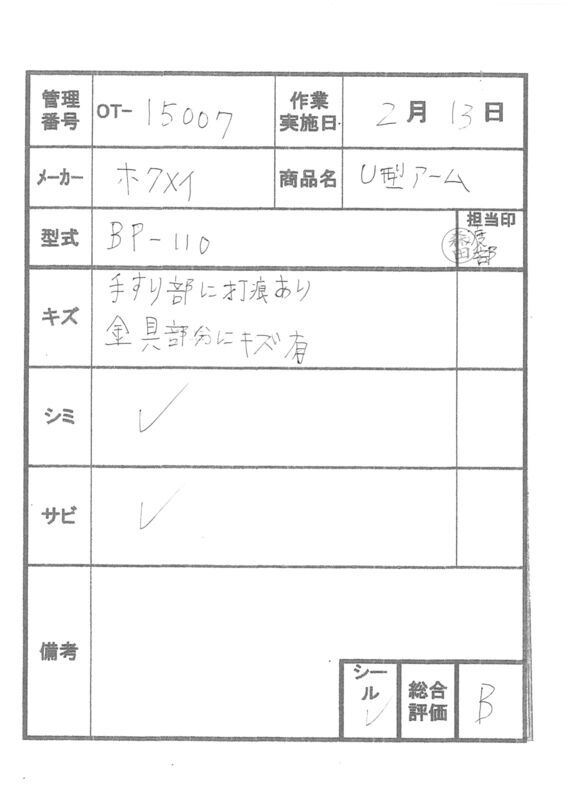 管理番号 OT- 15007 作業実施日 2月13日
メーカー ホクメイ 商品名 U型アーム
型式 BP-110 担当印
森田 渡部
キズ 手すり部に打痕あり
金具部分にキズ有
シミ ✓
サビ ✓
備考
シール ✓ 総合評価 B